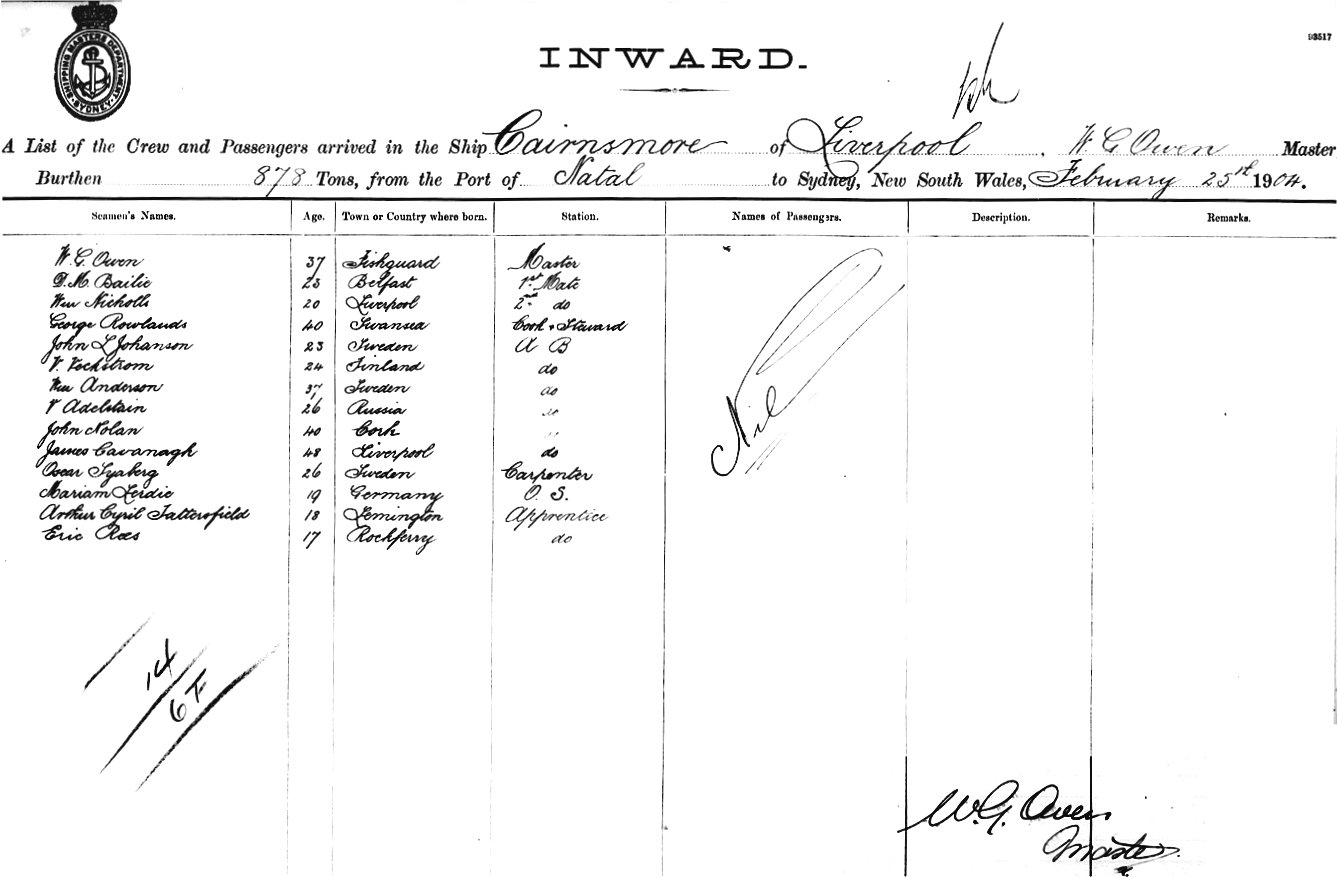 SHIPPING MASTERS DEPARTMENT SYDNEY
93517
INWARD.
A List of the Crew and Passengers arrived in the Ship Cairnsmore of Liverpool, W G Owen Master
Burthen 878 Tons, from the Port of Natal to Sydney, New South Wales, February 25st 1904.
Seamen's Names. Age. Town or Country where born. Station. Names of Passengers. Description. Remarks.
W. G. Owen 37 Fishguard Master
D. M. Bailie 23 Belfast 1st Mate
Wm Nicholls 20 Liverpool 2nd do
George Rowlands 40 Swansea Cook + Steward
John L Johanson 23 Sweden A B
V. Veckstrom 24 Finland do
Wm Anderson 37 Sweden do
V Adelstain 26 Russia do
John Nolan 40 Cork
James Cavanagh 48 Liverpool do
Oscar 26 Sweden Carpenter
Mariam 19 Germany O. S.
Arthur Cyril Tattersfield 18 Lemington Apprentice
Eric Rees 17 Rockferry do
Nil
14
6 F
W. G. Owen
Master